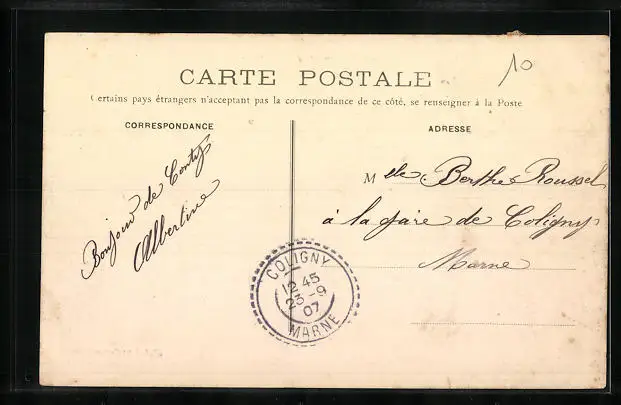 10
CARTE POSTALE
Certains pays étrangers n'acceptant pas la correspondance de ce côté, se renseigner à la Poste
CORRESPONDANCE
Bonjour de Conty
Albertine
ADRESSE
Mlle Berthe Roussel
à la gare de Coligny
Marne
COLIGNY
12 45
23 -9
07
MARNE